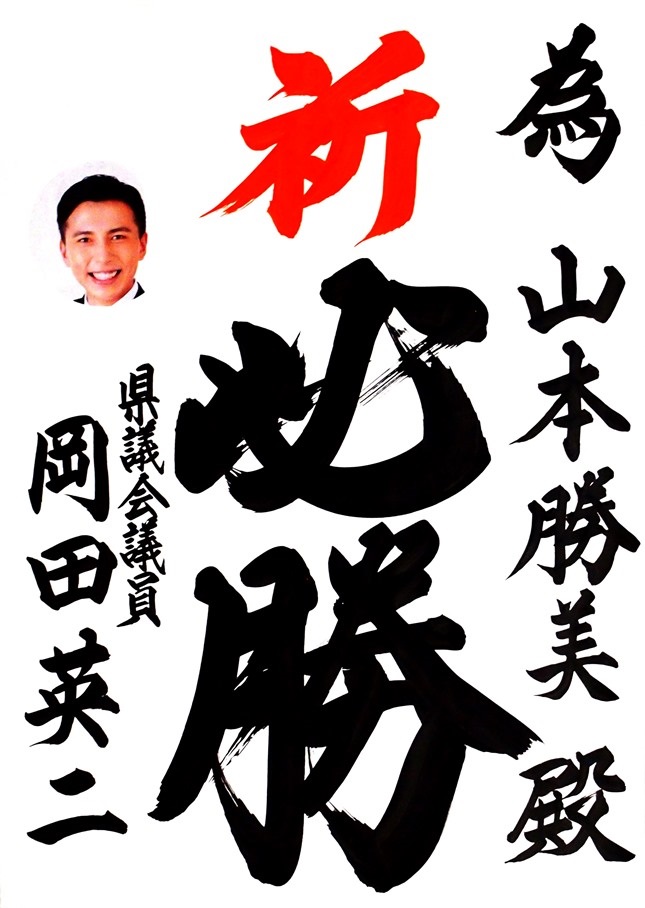 為 山本勝美 殿
祈必勝
県議会議員
岡田英二